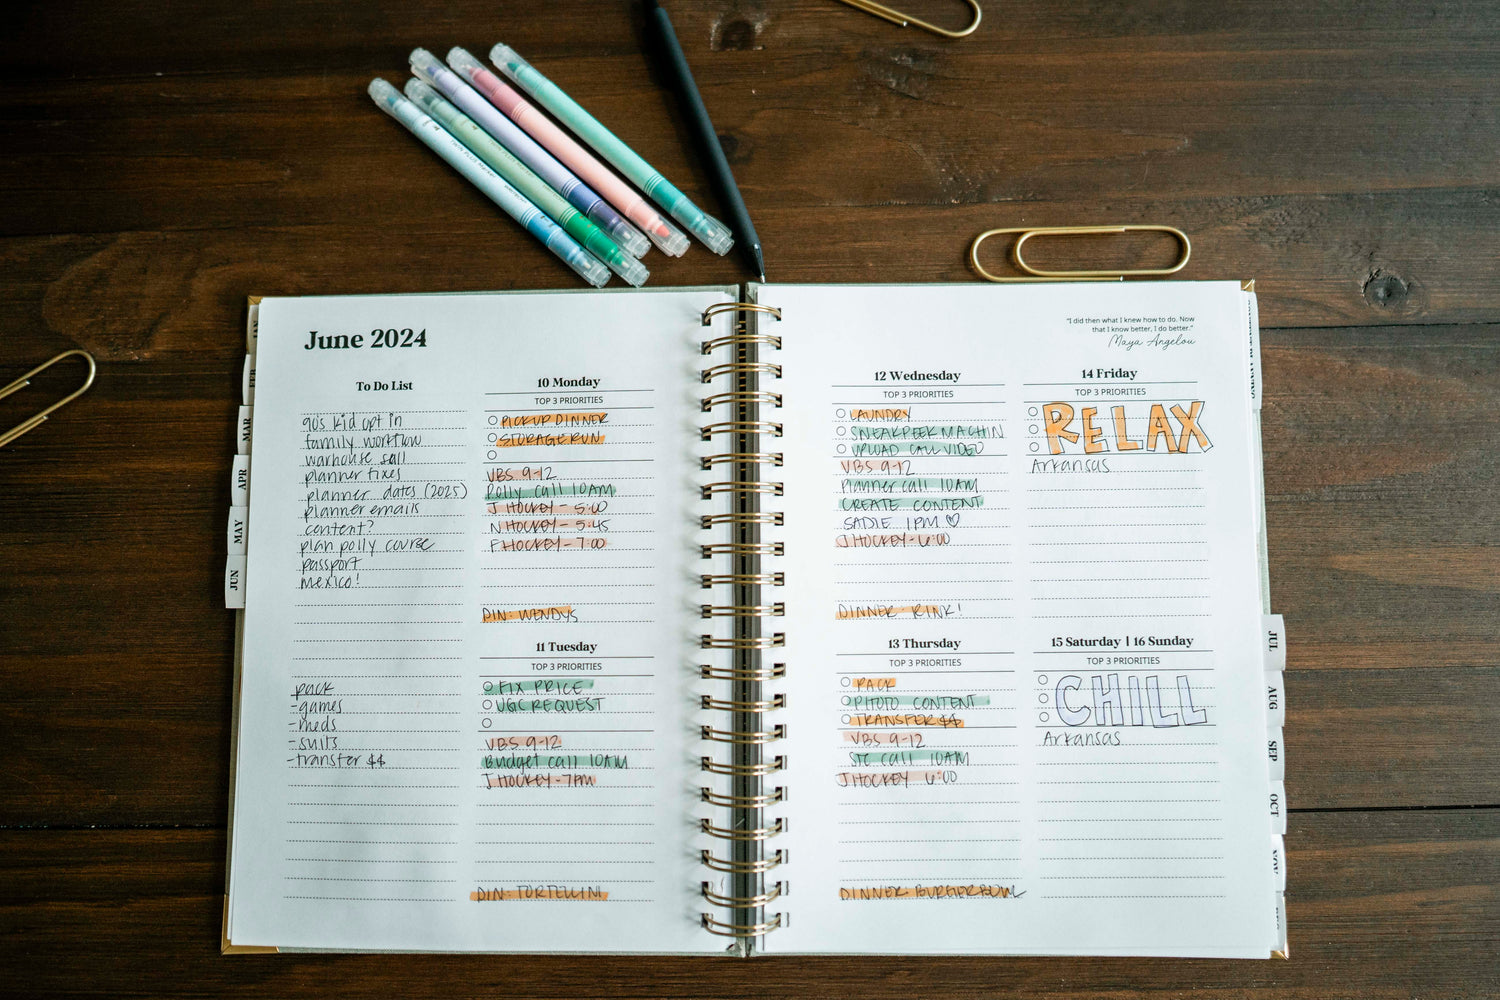 June 2024
To Do List
90's kid opt in
family workflow
warhouse sall
planner fixes
planner dates (2025)
planner emails
content?
plan polly course
passport
mexico!
pack
-games
-meds
-suits
-transfer $$
10 Monday
TOP 3 PRIORITIES
PICKUP DINNER
STORAGE RUN
VBS 9-12
Polly call 10AM
J HOCKEY - 5:00
N HOCKEY - 5:45
F HOCKEY - 7:00
DIN: WENDYS
11 Tuesday
TOP 3 PRIORITIES
FIX PRICE
UGC REQUEST
VBS 9-12
Budget call 10AM
J HOCKEY - 7PM
DIN: TORTELLINI
"I did then what I knew how to do. Now
that I know better, I do better."
Maya Angelou
12 Wednesday
TOP 3 PRIORITIES
LAUNDRY
SNEAK PEEK MACHIN
UPLOAD CALL VIDEO
VBS 9-12
Planner call 10AM
CREATE CONTENT
SADIE 1PM ♡
J HOCKEY - 6:00
DINNER - RINK!
13 Thursday
TOP 3 PRIORITIES
PACK
PHOTO CONTENT
TRANSFER $$
VBS 9-12
STC call 10AM
J HOCKEY 6:00
DINNER: BURGER BOWL
14 Friday
TOP 3 PRIORITIES
RELAX
Arkansas
15 Saturday | 16 Sunday
TOP 3 PRIORITIES
CHILL
Arkansas
FEB
MAR
APR
MAY
JUN
JUL
AUG
SEP
OCT
NOV